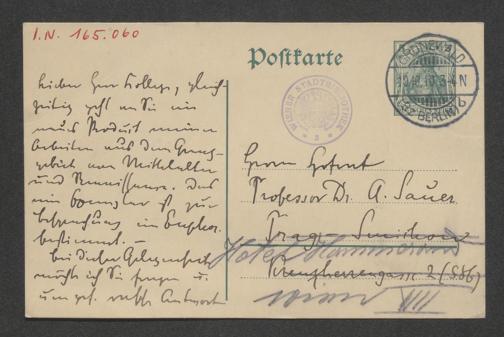 I.N. 165.060
Postkarte
GRUNEWALD
(BZ. BERLIN) b
WIENER STADTBIBLIOTHEK
Lieber Herr Kollege, gleich-
zeitig geht an Sie ein
neues Produkt meiner
Arbeiten aus dem Grenz-
gebiet von Mittelalter
und Renaissance. Das
ein Exemplar ist zur
Besprechung im Euphor.
bestimmt. —
Bei dieser Gelegenheit
möchte ich Sie fragen u.
um gef. Antwort
Herrn Hofrat
Professor Dr. A. Sauer
Prag - Smichow
Hotel Hammerand
Kreuzherrengasse 2 (586)
Wien VIII